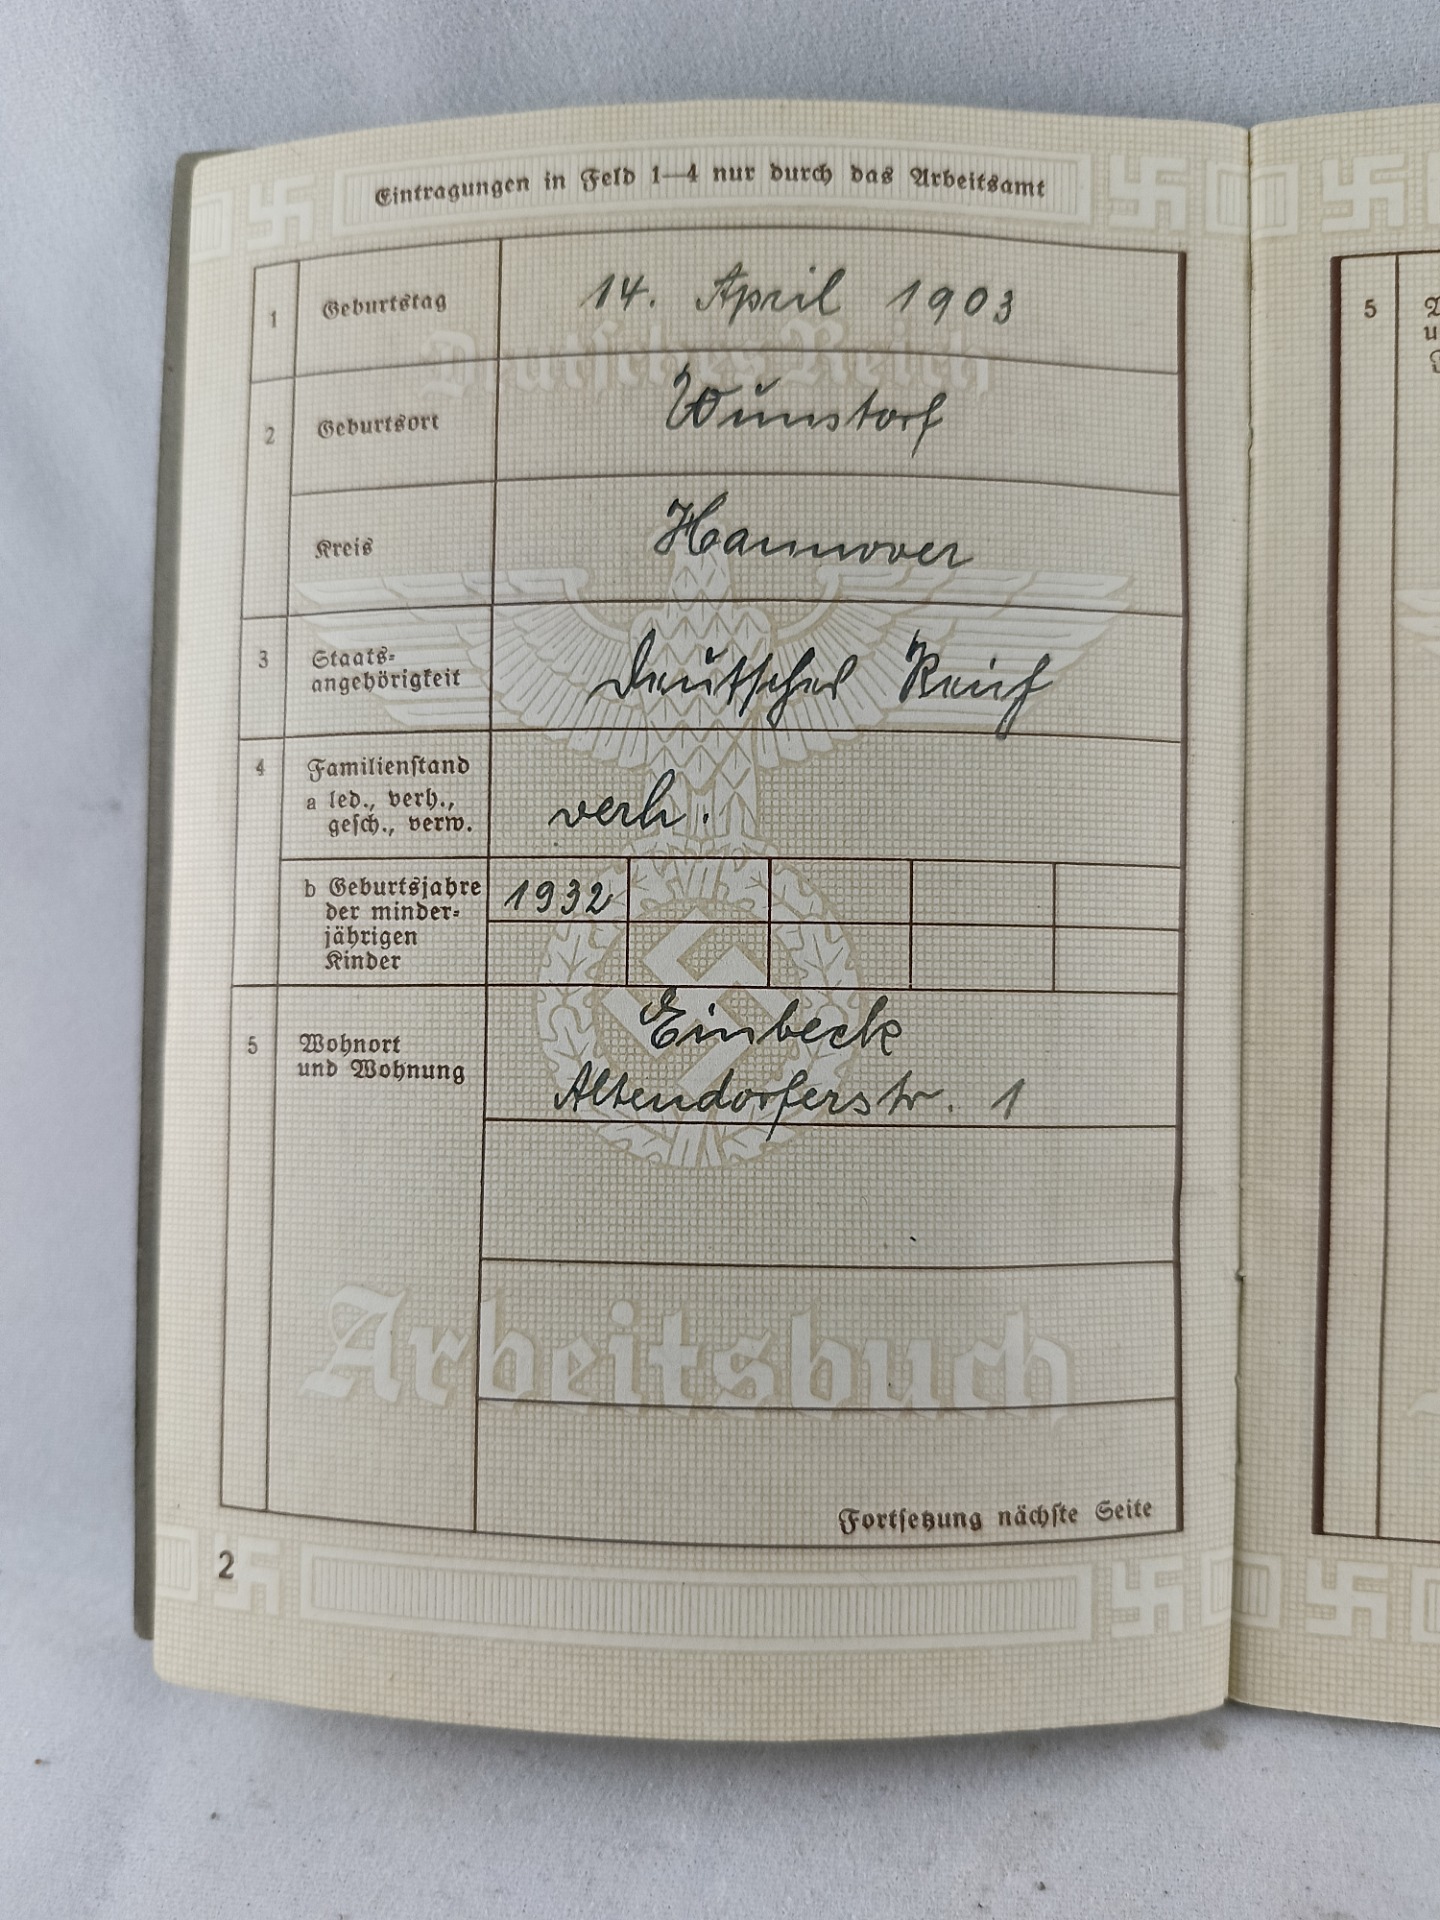 Eintragungen in Feld 1—4 nur durch das Arbeitsamt
1 Geburtstag 14. April 1903
Deutsches Reich
2 Geburtsort Wunstorf
Kreis Hannover
3 Staats=
angehörigkeit Deutsches Reich
4 Familienstand
a led., verh.,
gesch., verw. verh.
b Geburtsjahre 1932
der minder=
jährigen
Kinder
5 Wohnort Einbeck
und Wohnung Altendorferstr. 1
Arbeitsbuch
Fortsetzung nächste Seite
2
5